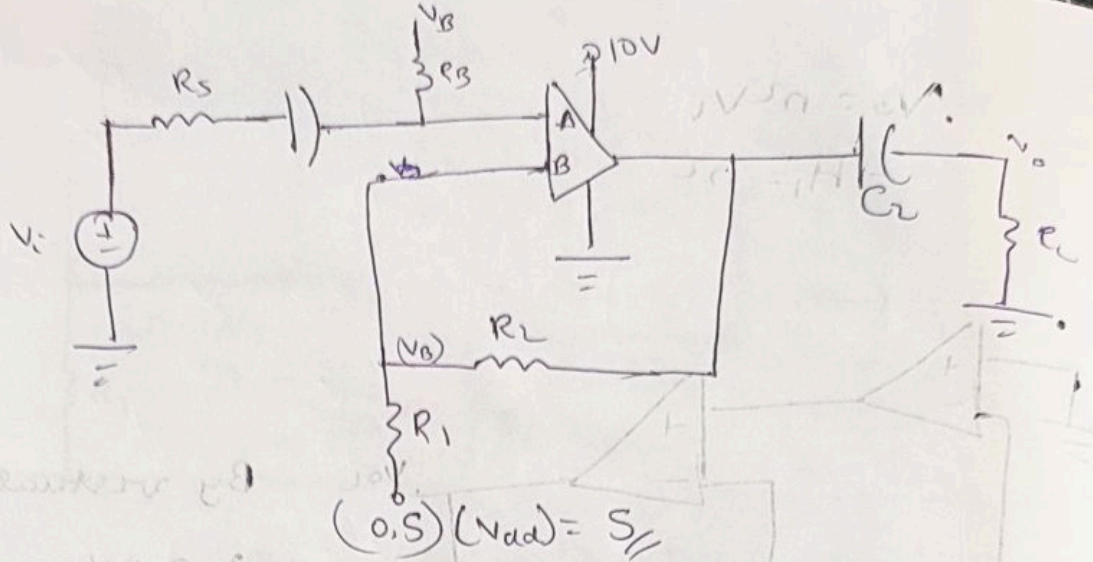 VB
RB
10V
Rs
A
B
Vi
C2
Vo
RL
(VB)
R2
R1
(0,5) (Vdd) = 5//